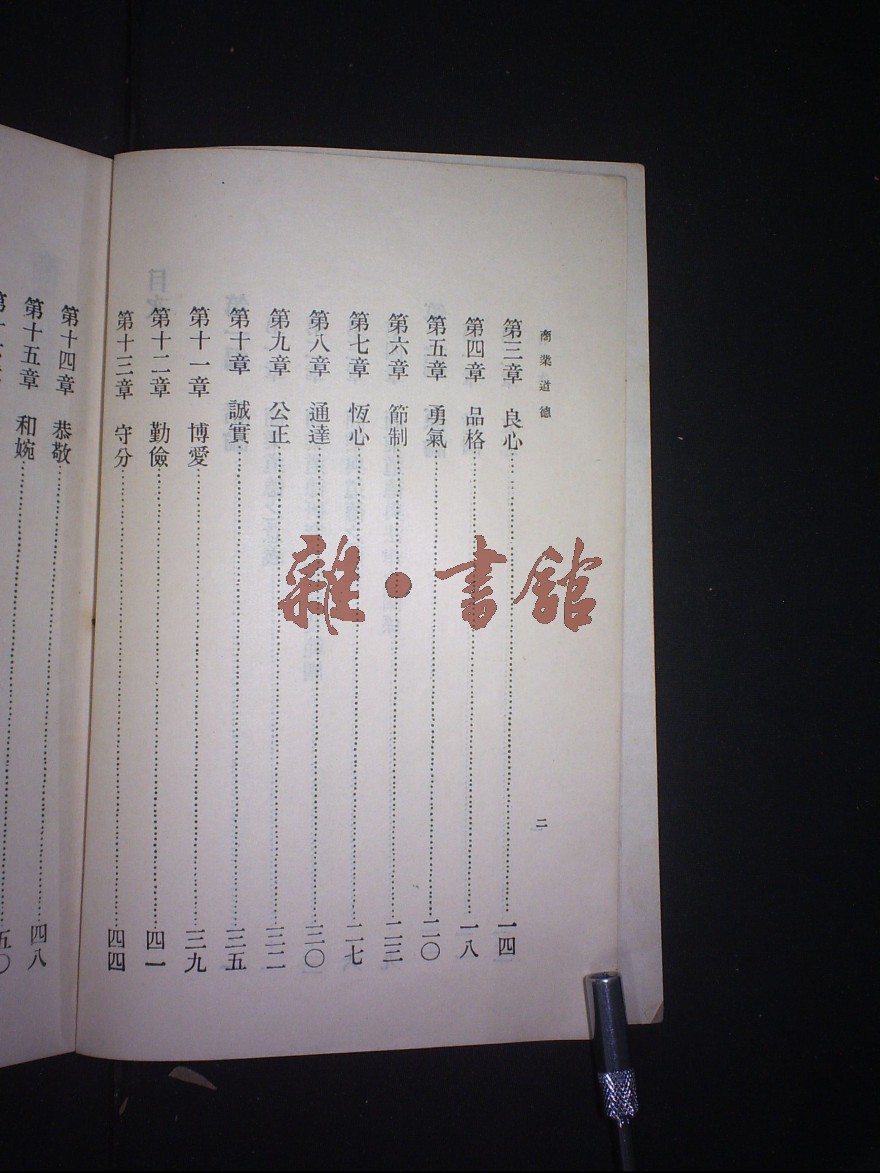 商業道德
二
第三章 良心……一四
第四章 品格……一八
第五章 勇氣……二〇
第六章 節制……二三
第七章 恆心……二七
第八章 通達……三〇
第九章 公正……三二
第十章 誠實……三五
第十一章 博愛……三九
第十二章 勤儉……四一
第十三章 守分……四四
第十四章 恭敬
第十五章 和婉……四八
五〇
雜·書館